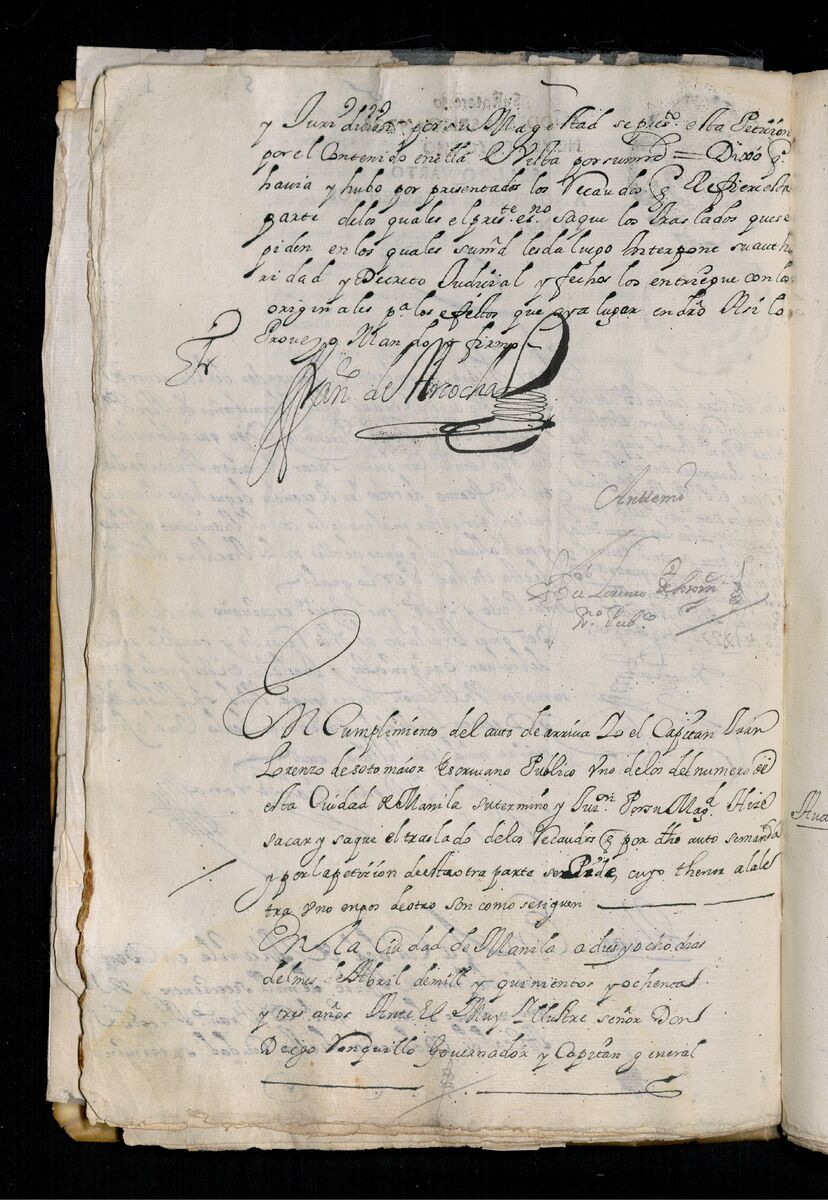 y Juridicion por su Magestad se pres.ta esta Petizion
por el Contenido en ella E Vista por su mrd = Dixo q
havia y hubo por presentados los Recaudos q Refiere esta
parte de los quales el pres.te es.no saque los traslados que se
piden en los quales su md desda luego Interpone su auth
ridad y Decreto Judizial y fechos los entriegue con los
originales p.a los efectos que aya lugar en dro Asi lo
Proveyo Mando y firmo
Fran de Atocha
Antte mi
Lorenzo de Sotom
no Pub.co
En Cumplimiento del auto de arriva Yo el Capitan Juan
Lorenzo de soto maior Escrivano Publico Uno de los del numero de
esta Ciudad de Manila su termino y Jur.on Por su Mag.d Hize
sacar y saque el traslado de los Recaudos q por dho auto se manda
y por la petizion de la otra parte se Pide, cuyo thenor a la le
tra Uno en pos de otro Son como se siguen
En la Ciudad de Manila a dies y ocho dias
del mes de Abril de mill y quinientos y ochenta
y tres años Ante El Muy Illustre señor Don
Diego Ronquillo Governador y Capitan general